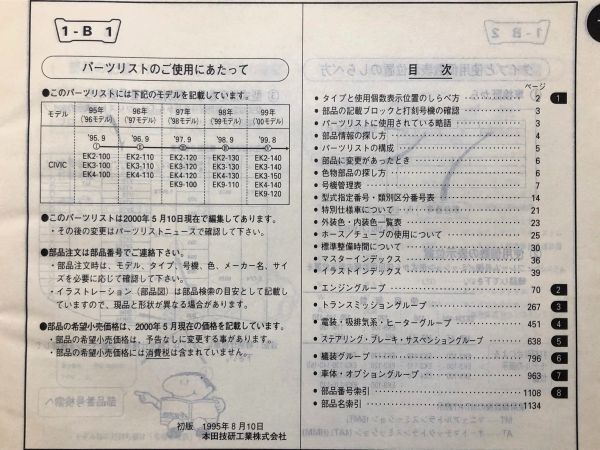 1-B 1
パーツリストのご使用にあたって
●このパーツリストには下記のモデルを記載しています。
モデル 95年 ('96モデル) 96年 ('97モデル) 97年 ('98モデル) 98年 ('99モデル) 99年 ('00モデル)
'95. 9 '96. 9 '97. 9 '98. 9 '99. 8
① ② ③ ④ ⑤
CIVIC
EK2-100 EK2-110 EK2-120 EK2-130 EK2-140
EK3-100 EK3-110 EK3-120 EK3-130 EK3-140
EK4-100 EK4-110 EK4-120 EK4-130 EK4-140
EK9-100 EK9-110 EK9-120
●このパーツリストは2000年5月10日現在で編集してあります。
・その後の変更にはパーツリストニュースで確認して下さい。
●部品注文は部品番号でご連絡下さい。
・部品注文時は、モデル、タイプ、号機、色、メーカー名、サイ
ズを必要に応じて確認して下さい。
・イラストレーション（部品図）は部品検索の目安として記載し
ていますので、現品と形状が異なる場合があります。
●部品の希望小売価格は、2000年5月現在の価格を記載しています。
・部品の希望小売価格は、予告なしに変更する事があります。
・部品の希望小売価格には消費税は含まれていません。
初版 1995年8月10日
本田技研工業株式会社
目 次
ページ
・タイプと使用個数表示位置のしらべ方 2 1
・部品の記載ブロックと打刻号機の確認 3
・パーツリストに使用されている略語 3
・部品情報の探し方 4
・パーツリストの構成 5
・部品に変更があったとき 6
・色物部品の探し方 6
・号機管理表 7
・型式指定番号・類別区分番号表 14
・特別仕様車について 21
・外装色・内装色一覧表 23
・ホース／チューブの使用について 25
・標準整備時間について 30
・マスターインデックス 36
・イラストインデックス 39
・エンジングループ 70 2
・トランスミッショングループ 267 3
・電装・吸排気系・ヒーターグループ 451 4
・ステアリング・ブレーキ・サスペンショングループ 638 5
・艤装グループ 796 6
・車体・オプショングループ 963 7
・部品番号索引 1108 8
・部品名索引 1134